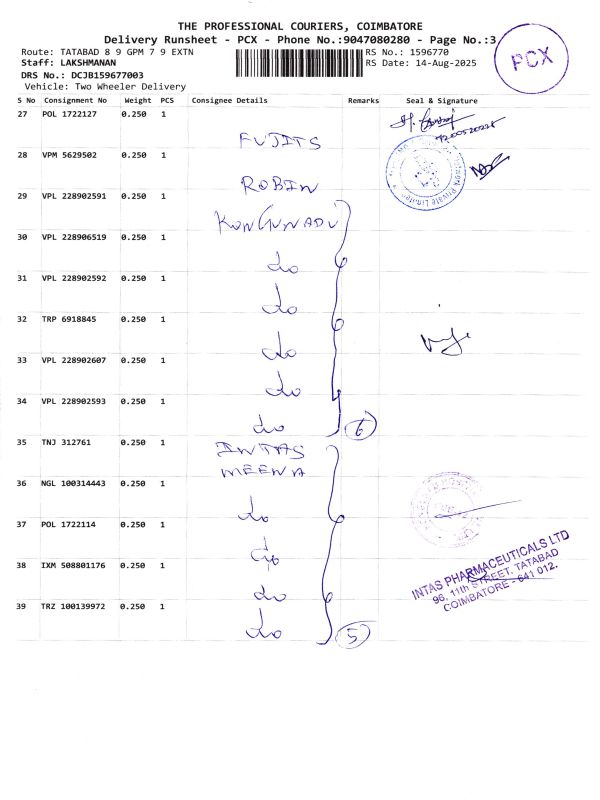 THE PROFESSIONAL COURIERS, COIMBATORE
Delivery Runsheet - PCX - Phone No.:9047080280 - Page No.:3
Route: TATABAD 8 9 GPM 7 9 EXTN
RS No.: 1596770
Staff: LAKSHMANAN
RS Date: 14-Aug-2025
DRS No.: DCJB159677003
Vehicle: Two Wheeler Delivery
PCX
S No Consignment No Weight PCS Consignee Details Remarks Seal & Signature
27 POL 1722127 0.250 1
FUJITS
28 VPM 5629502 0.250 1
ROBIN
Private Limited
29 VPL 228902591 0.250 1
KONGUNADU
30 VPL 228906519 0.250 1
do
31 VPL 228902592 0.250 1
do
32 TRP 6918845 0.250 1
do
33 VPL 228902607 0.250 1
do
34 VPL 228902593 0.250 1
do
6
35 TNJ 312761 0.250 1
INTAS
MEENA
36 NGL 100314443 0.250 1
do
37 POL 1722114 0.250 1
do
38 IXM 508801176 0.250 1
do
39 TRZ 100139972 0.250 1
do
5
INTAS PHARMACEUTICALS LTD
96, 11th STREET, TATABAD
COIMBATORE - 641 012.